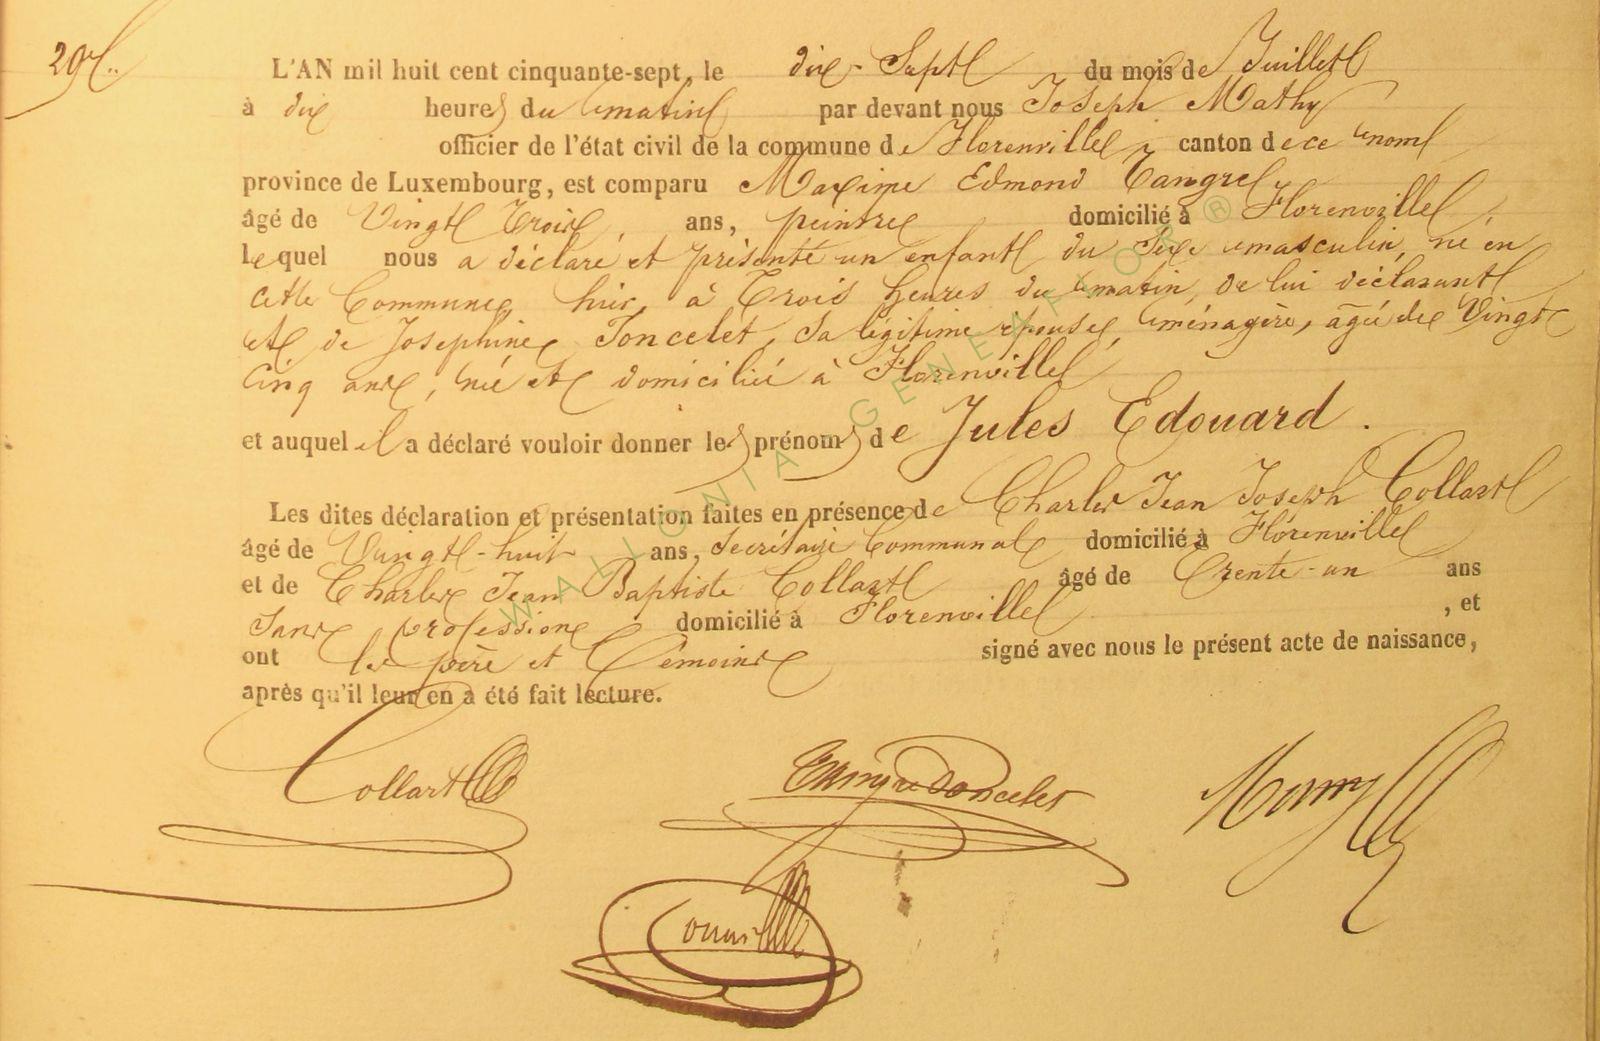 29
L'AN mil huit cent cinquante-sept, le dix-Sept du mois de Juillet
à dix heures du matin par devant nous Joseph Mathy
officier de l'état civil de la commune de Florenville, canton de ce nom
province de Luxembourg, est comparu Maxime Edmond Tangre
âgé de Vingt Trois, ans, peintre domicilié à Florenville,
Lequel nous a déclaré et présenté un enfant du sexe masculin, né en
cette Commune, hier, à Trois heures du matin, de lui déclarant
et de Josephine Poncelet, sa légitime épouse, ménagère, agée de Vingt
cinq ans, née et domiciliée à Florenville
et auquel il a déclaré vouloir donner les prénoms de Jules Edouard.
Les dites déclaration et présentation faites en présence de Charles Jean Joseph Collart
âgé de Vingt-huit ans, secrétaire Communal domicilié à Florenville
et de Charles Jean Baptiste Collart âgé de Trente-un ans
Sans profession domicilié à Florenville, et
ont les père et Témoins signé avec nous le présent acte de naissance,
après qu'il leur en a été fait lecture.
Collart Tangre Poncelet
WALLONIA GENEALOR ®